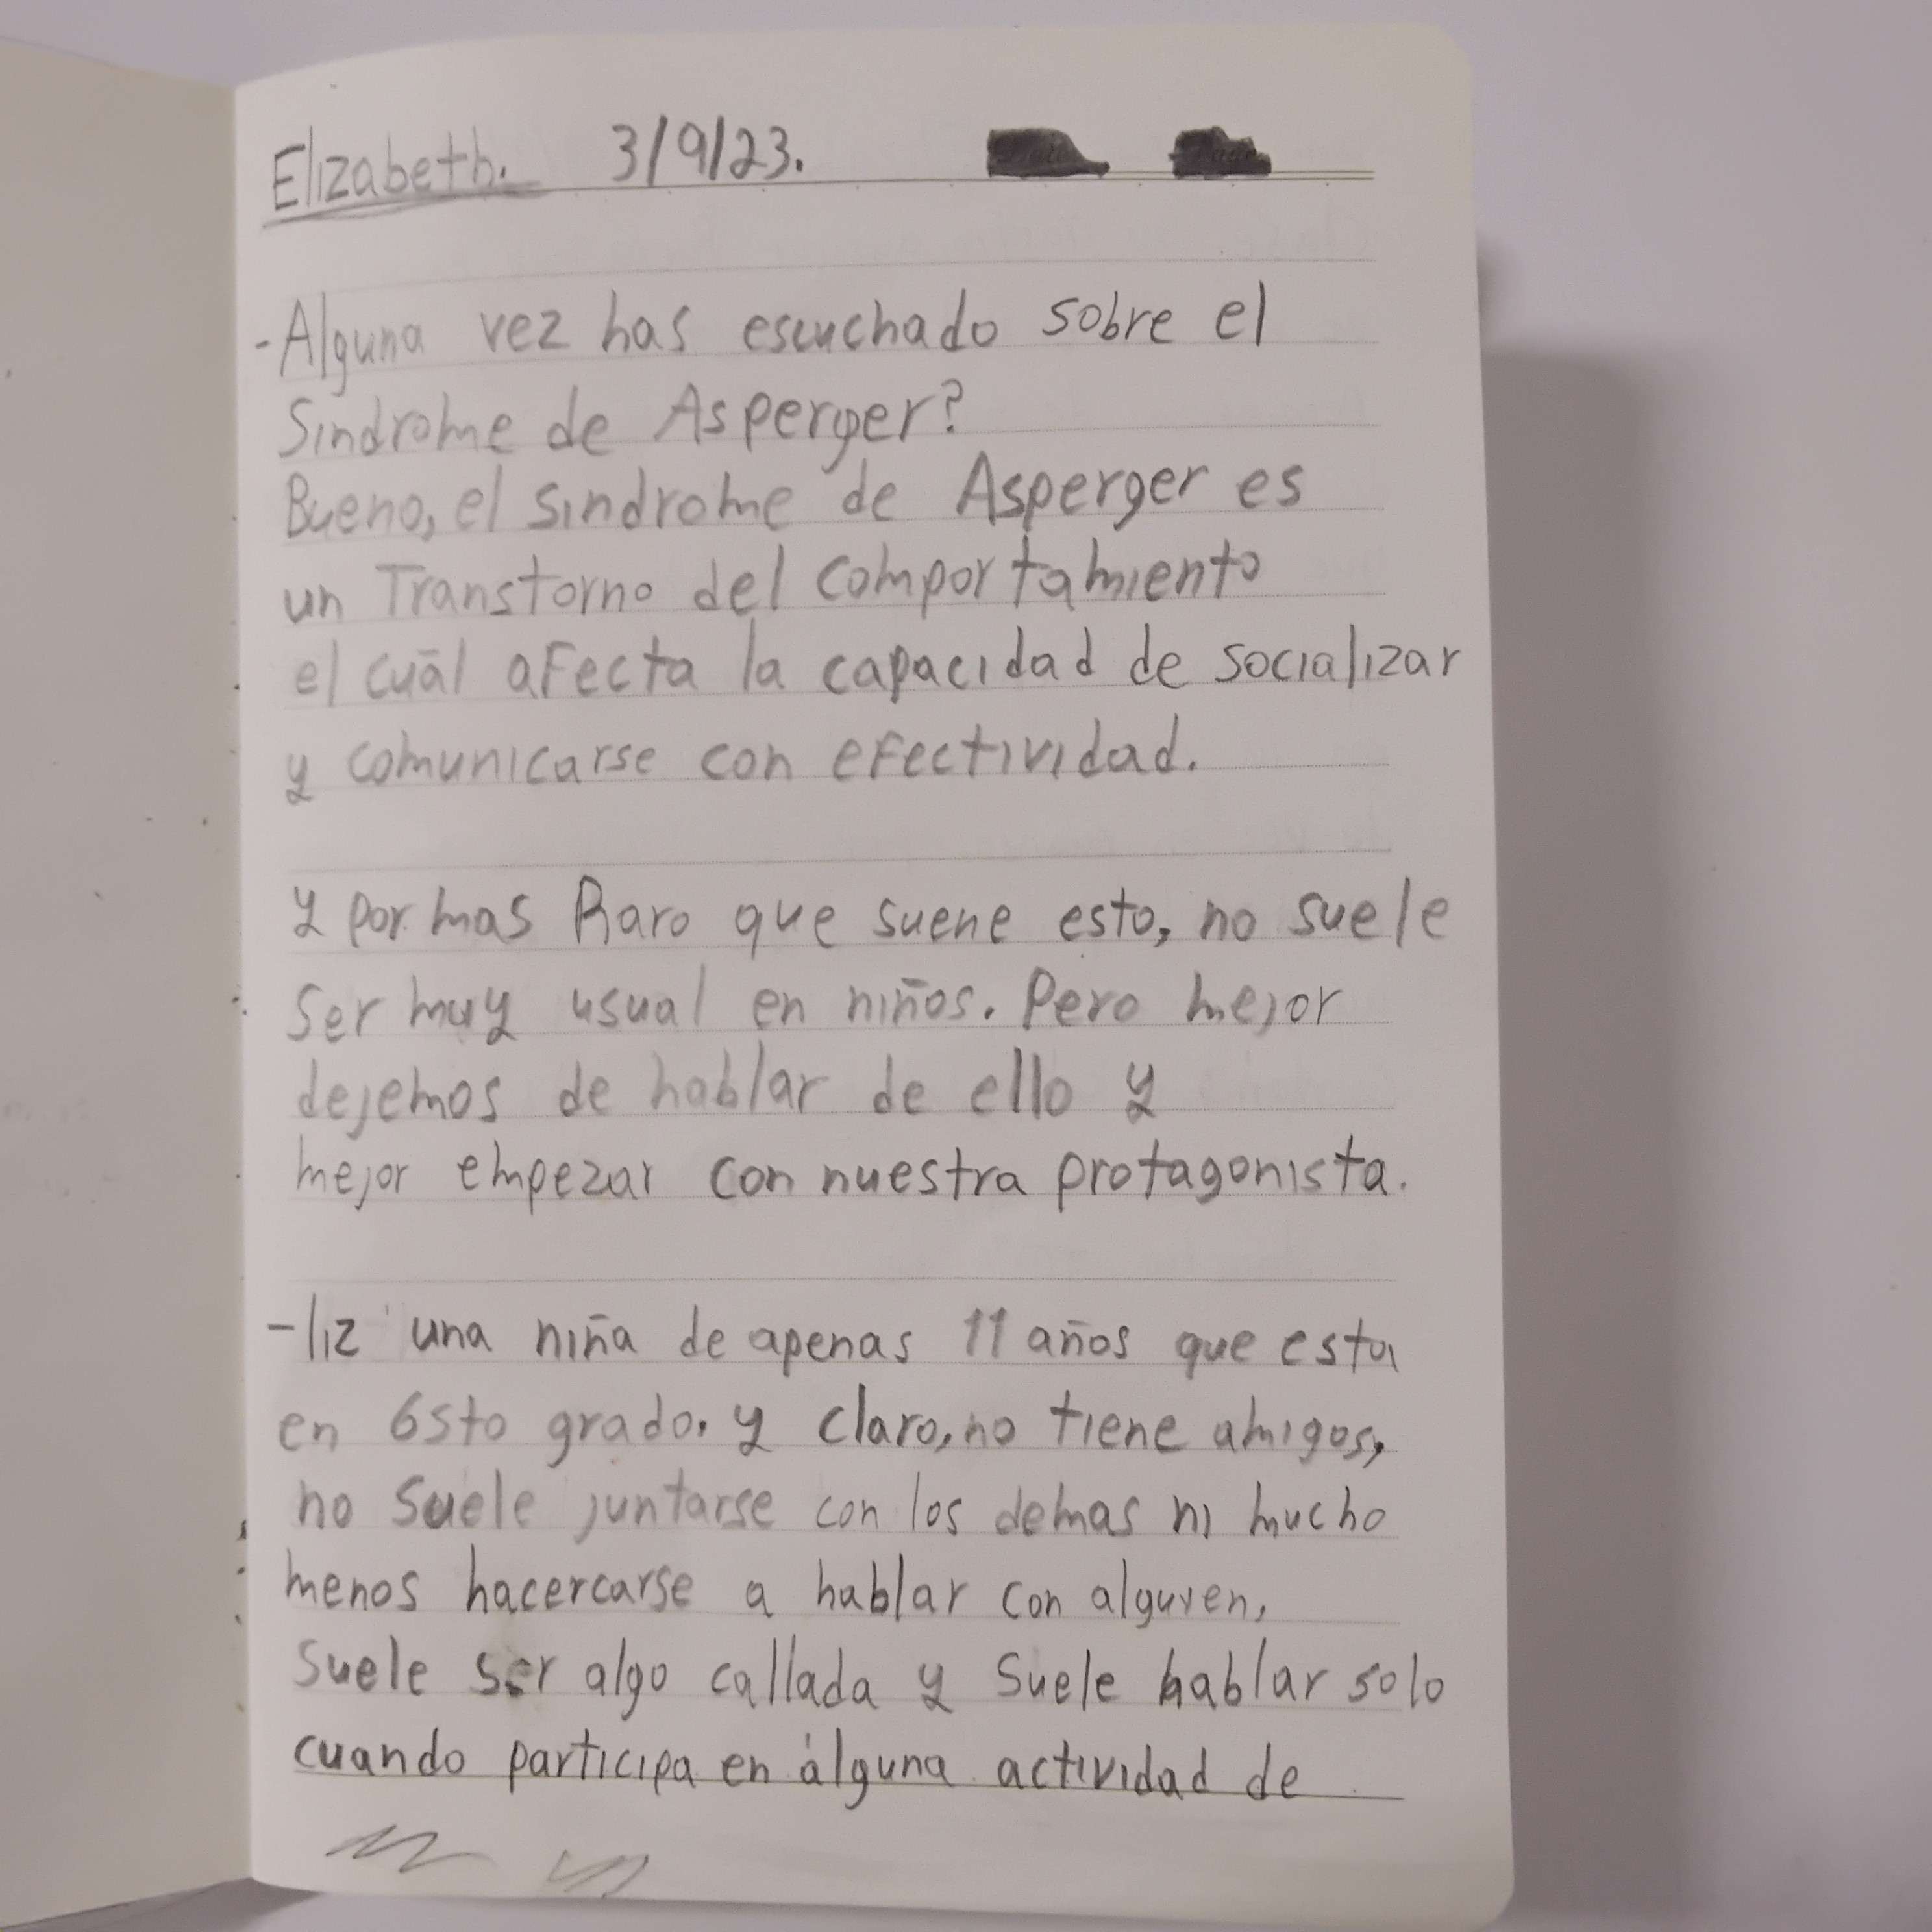 Elizabeth. 3/9/23.
-Alguna vez has escuchado sobre el
Sindrome de Asperger?
Bueno, el sindrome de Asperger es
un Transtorno del comportamiento
el cuál afecta la capacidad de socializar
y comunicarse con efectividad.
Y por mas Raro que suene esto, no suele
ser muy usual en niños. Pero mejor
dejemos de hablar de ello y
mejor empezar con nuestra protagonista.
-liz una niña de apenas 11 años que esta
en 6sto grado. y claro, no tiene amigos,
no suele juntarse con los demas ni mucho
menos hacercarse a hablar con alguien,
suele ser algo callada y suele hablar solo
cuando participa en álguna actividad de